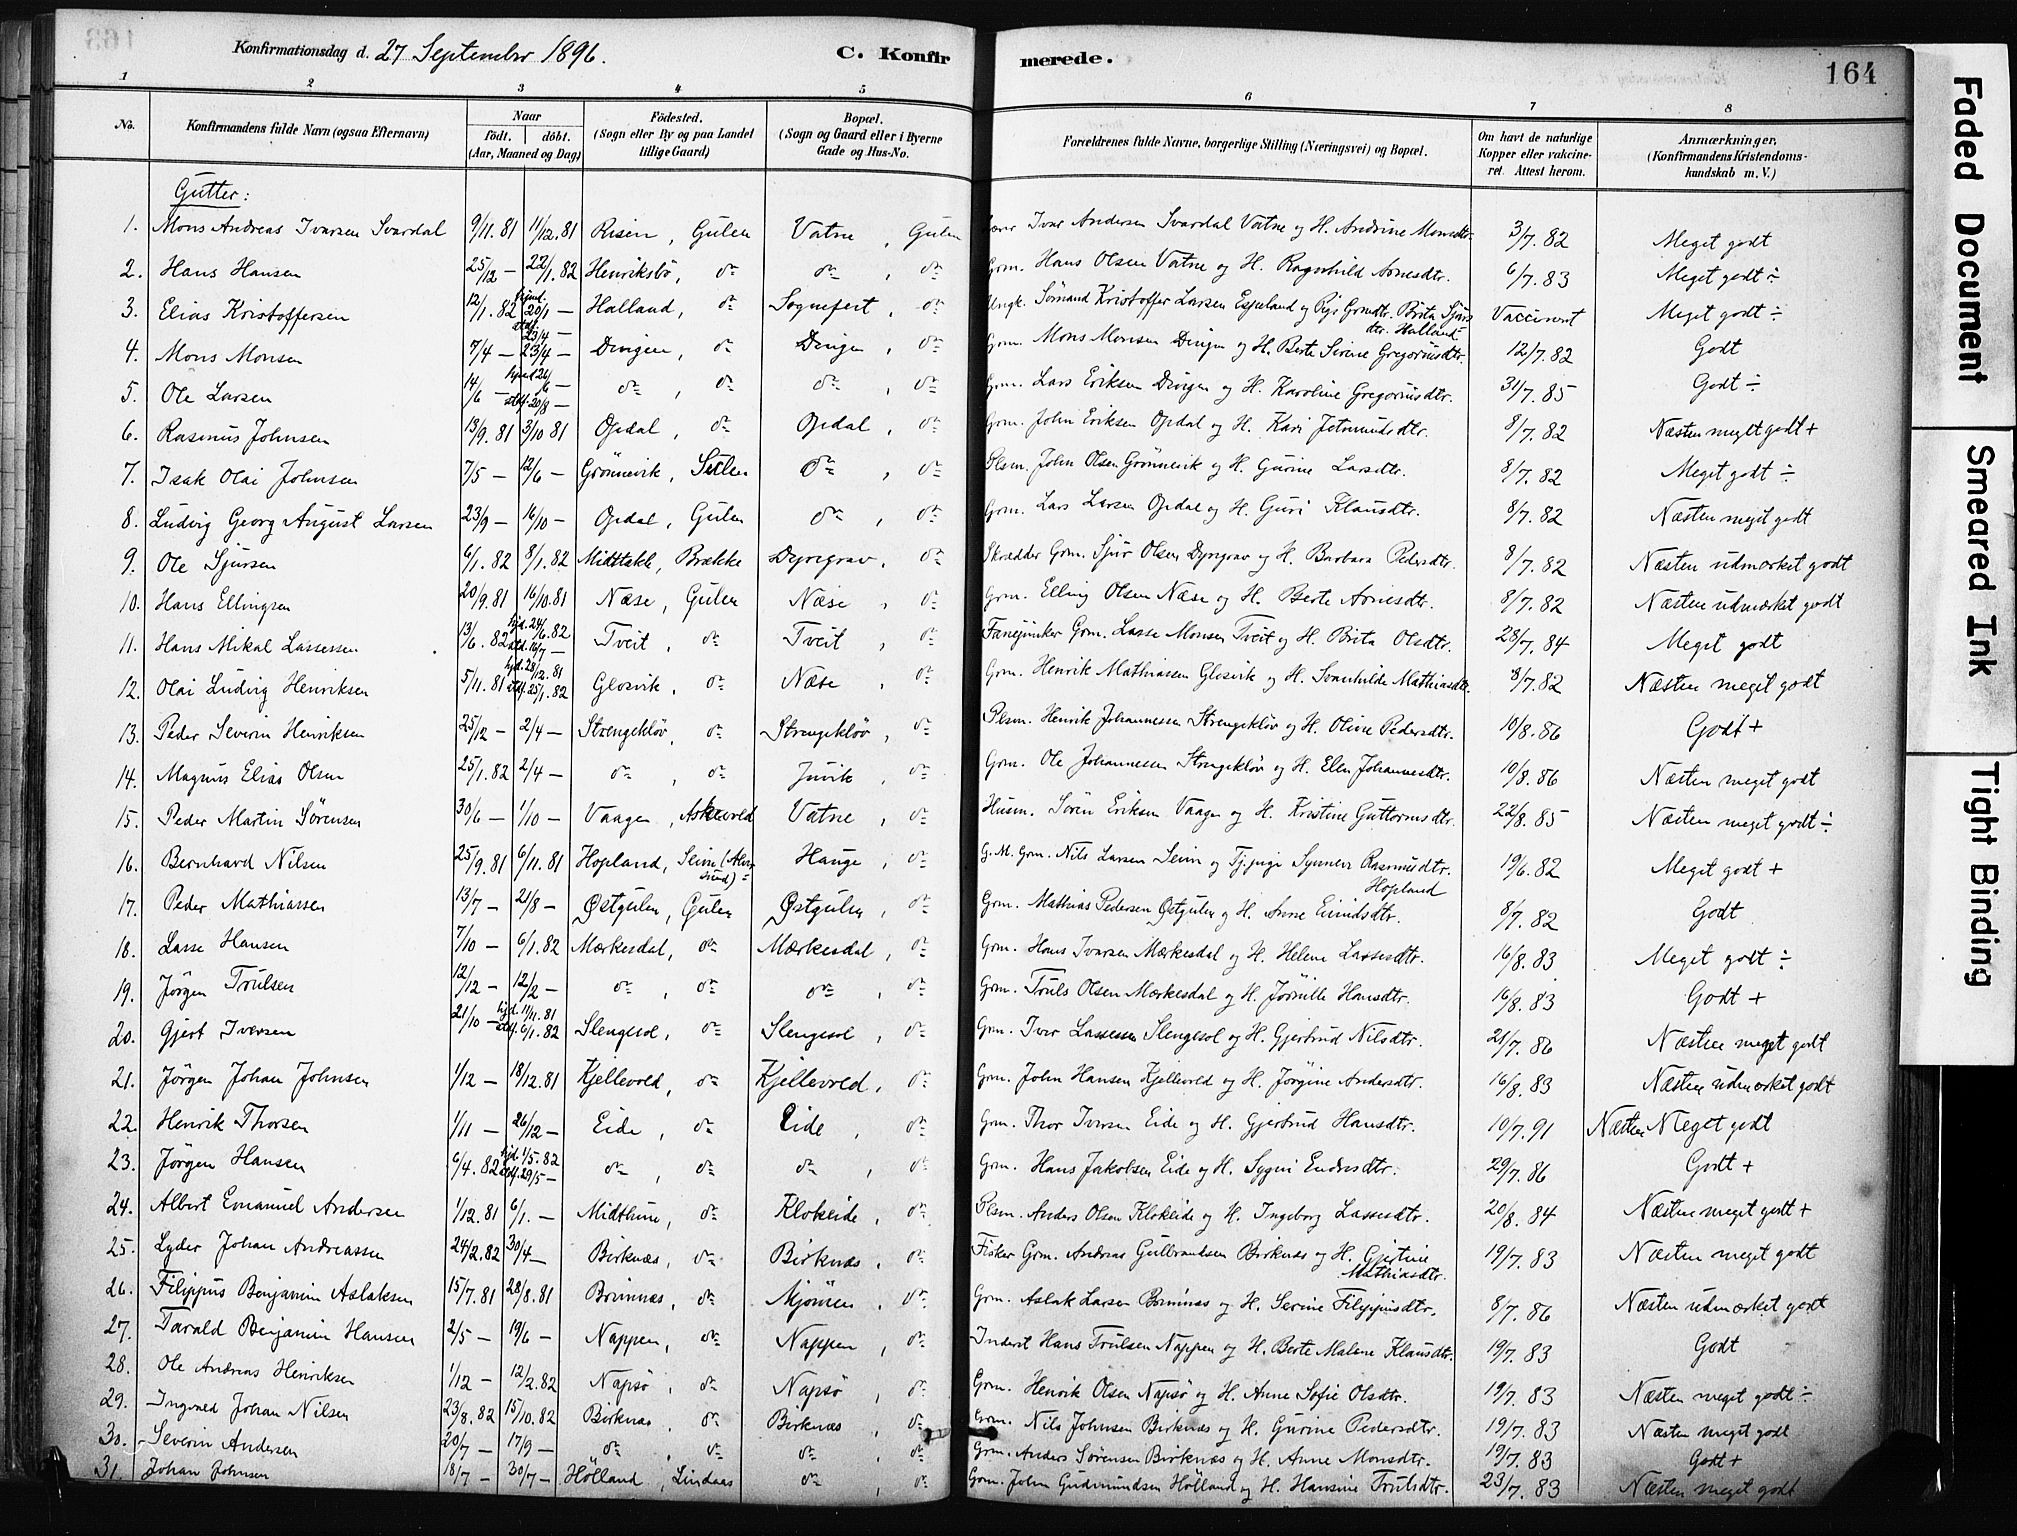 Konfirmationsdag d. 27 September 1896. C. Konfirmerede. 164
1 2 3 4 5 6 7 8
No. Konfirmandens fulde Navn (ogsaa Efternavn) Naar födt. döbt. (Aar, Maaned og Dag) Födested. (Sogn eller By og paa Landet tillige Gaard) Bopæl. (Sogn og Gaard eller i Byerne Gade og Hus-No. Forældrenes fulde Navne, borgerlige Stilling (Næringsvei) og Bopæl. Om havt de naturlige Kopper eller vakcineret. Attest herom. Anmærkninger. (Konfirmandens Kristendomskundskab m. V.)
Gutter:
1. Mons Andreas Ivarsen Svardal 9/11.81 11/12.81 Risen, Gulen Vatne, Gulen Ivar Andersen Svardal Vatne og H. Andrine Monsdtr. 3/7.82 Meget godt
2. Hans Hansen 25/12 — 22/1.82 Henriksbö, do do, do Grm. Hans Olsen Vatne og H. Ragnhild Arnesdtr. 6/7.83 Meget godt ÷
3. Elias Kristoffersen 12/1.82 hjmd. 20/1 — stdf. 23/4 — Halland, do Sognefest, do Ungk. Sömand Kristoffer Larsen Espeland og Pige Grmdtr. Brita Sjursdtr. Halland Vaccineret Meget godt ÷
4. Mons Monsen 7/4 — 23/4 — Dingen, do Dingen, do Grm. Mons Monsen Dingen og H. Berte Serine Gregoriusdtr. 12/7.82 Godt
5. Ole Larsen 14/6 — stdf. 20/8 — do, do do, do Grm. Lars Eriksen Dingen og H. Karoline Gregoriusdtr. 31/7.85 Godt ÷
6. Rasmus Johnsen 13/9.81 3/10 81 Opdal, do Opdal, do Grm. John Eriksen Opdal og H. Kari Jetmundsdtr. 8/7.82 Næsten meget godt +
7. Isak Olai Johnsen 7/5 — 12/6 — Grönnevik, do, do Plsm. John Olsen Grönnevik og H. Gurine Larsdtr. 8/7.82 Meget godt ÷
8. Ludvig Georg August Larsen 23/9 — 16/10 — Opdal, Gulen do, do Grm. Lars Larsen Opdal og H. Guri Klausdtr. 8/7.82 Næsten meget godt
9. Ole Sjursen 6/1.82 8/1.82 Midttakle, Brække Dyregrav, do Skrædder Grm. Sjur Olsen Dyregrav og H. Barbara Pedersdtr. 8/7.82 Næsten udmærket godt
10. Hans Ellingsen 20/9.81 16/10.81 Næse, Gulen Næse, do Grm. Elling Olsen Næse og H. Berte Arnesdtr. 8/7.82 Næsten udmærket godt
11. Hans Mikal Lassesen 13/6.82 hjd. 24/6.82 stdf. 16/7 — Tveit, do Tveit, do Fanejunker Grm. Lasse Monsen Tveit og H. Brita Olsdtr. 28/7.84 Meget godt
12. Olai Ludvig Henriksen 5/11.81 hjd. 28/12.81 stdf. 25/1.82 Glosvik, do Næse, do Grm. Henrik Mathiassen Glosvik og H. Svanhilde Mathiasdtr. 8/7.82 Næsten meget godt
13. Peder Severin Henriksen 25/12 — 2/4 — Strengeklöv, do Strengeklöv, do Plsm. Henrik Johannessen Strengeklöv og H. Oline Pedersdtr. 10/8.86 Godt +
14. Magnus Elias Olsen 25/1.82 2/4 — do, do Juvik, do Grm. Ole Johannessen Strengeklöv og H. Ellen Johannesdtr. 10/8.86 Næsten meget godt
15. Peder Martin Sörensen 30/6 — 1/10 — Vaagen, Askevold Vatne, do Husm. Sören Eriksen Vaage og H. Kristine Guttormsdtr. 22/8.85 Næsten meget godt ÷
16. Bernhard Nilsen 25/9.81 6/11.81 Hopland, Seim Hauge, do G. M. Grm. Nils Larsen Seim og Synneva Rasmusdtr. Hopland 19/6.82 Meget godt +
17. Peder Mathiassen 13/7 — 21/8 — Østgulen, Gulen Østgulen, do Grm. Mathias Pedersen Østgulen og H. Anne Eimidsdtr. 8/7.82 Godt
18. Lasse Hansen 7/10 — 6/1.82 Mærkesdal, do Mærkesdal, do Grm. Hans Ivarsen Mærkesdal og H. Helene Lassesdtr. 16/8.83 Meget godt ÷
19. Jörgen Trulsen 12/12 — 12/2 — do, do do, do Grm. Truls Olsen Mærkesdal og H. Jörnille Hansdtr. 16/8.83 Godt +
20. Gjert Iversen 21/10 — hjd. 11/11.81 stdf. 6/1.82 Slengesol, do Slengesol, do Grm. Iver Lassesen Slengesol og H. Gjertrud Nilsdtr. 21/7.86 Næsten meget godt
21. Jörgen Johan Johnsen 1/12 — 18/12.81 Kjellevold, do Kjellevold, do Grm. John Hansen Kjellevold og H. Jörgine Andersdtr. 16/8.83 Næsten udmærket godt
22. Henrik Thorsen 1/11 — 26/12 — Eide, do Eide, do Grm. Thor Iversen Eide og H. Gjertrud Hansdtr. 10/7.91 Næsten Meget godt
23. Jörgen Hansen 6/4.82 hjd. 1/5.82 stdf. 29/5 — do, do do, do Grm. Hans Jakobsen Eide og H. Sygni Endresdtr. 29/7.86 Godt +
24. Albert Emanuel Andersen 1/12.81 6/1. — Midthun, doKlokeide, do Plsm. Anders Olsen Klokeide og H. Ingeborg Lassesdtr. 20/8.84 Næsten meget godt +
25. Lyder Johan Andreassen 24/2.82 30/4 — Birknæs, do Birknæs, do Fisker Grm. Andreas Gulbrandsen Birknæs og H. Gjertine Mathiasdtr. 19/7.83 Næsten meget godt
26. Filippus Benjamin Aslaksen 15/7.81 28/8.81 Brunnæs, do Mjömen, do Grm. Aslak Larsen Brunnæs og H. Serine Filippusdtr. 8/7.86 Næsten udmærket godt
27. Tarald Benjamin Hansen 2/5 — 19/6 — Nappen, do Nappen, do Inderst Hans Trulsen Nappen og H. Berte Malene Klausdtr. 19/7.83 Godt
28. Ole Andreas Henriksen 1/12 — 12/2.82 Napsö, do Napsö, do Grm. Henrik Olsen Napsö og H. Anne Sofie Olsdtr. 19/7.83 Næsten meget godt ÷
29. Ingvald Johan Nilsen 23/8.82 15/10.82 Birknæs, do Birknæs, do Grm. Nils Johnsen Birknæs og H. Gurine Pedersdtr. 19/7.83 Næsten meget godt
30. Severin Andersen 20/7 — 17/9 — do, do do, do Grm. Anders Sörensen Birknæs og H. Anne Monsdtr. 19/7.83 Godt +
31. Johan Johnsen 18/7 — 30/7 — Hölland, Lindaas do, do Grm. John Gudmundsen Hölland og H. Hansine Trulsdtr. 23/7.83 Næsten meget godt
Faded Document
Smeared Ink
Tight Binding